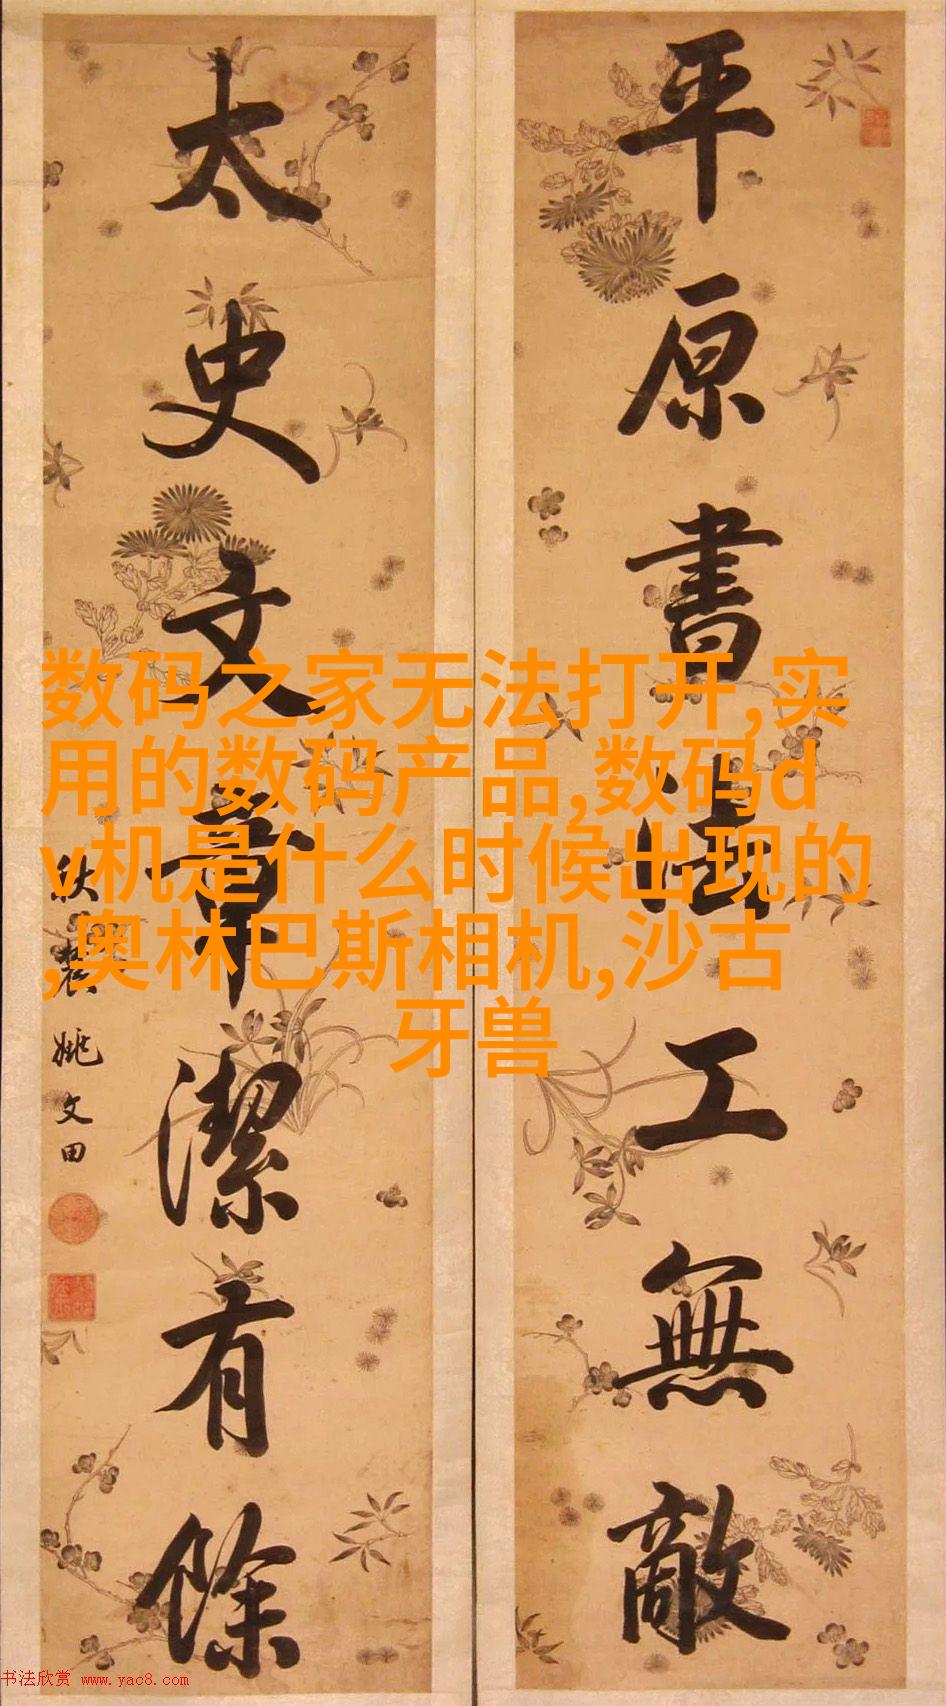 平原書法工無敵
太史文章潔有餘
秋農姚文田
数码之家无法打开,实
用的数码产品,数码d
v机是什么时候出现的
,奥林巴斯相机,沙古
牙兽
书法欣赏 www.yac8.com